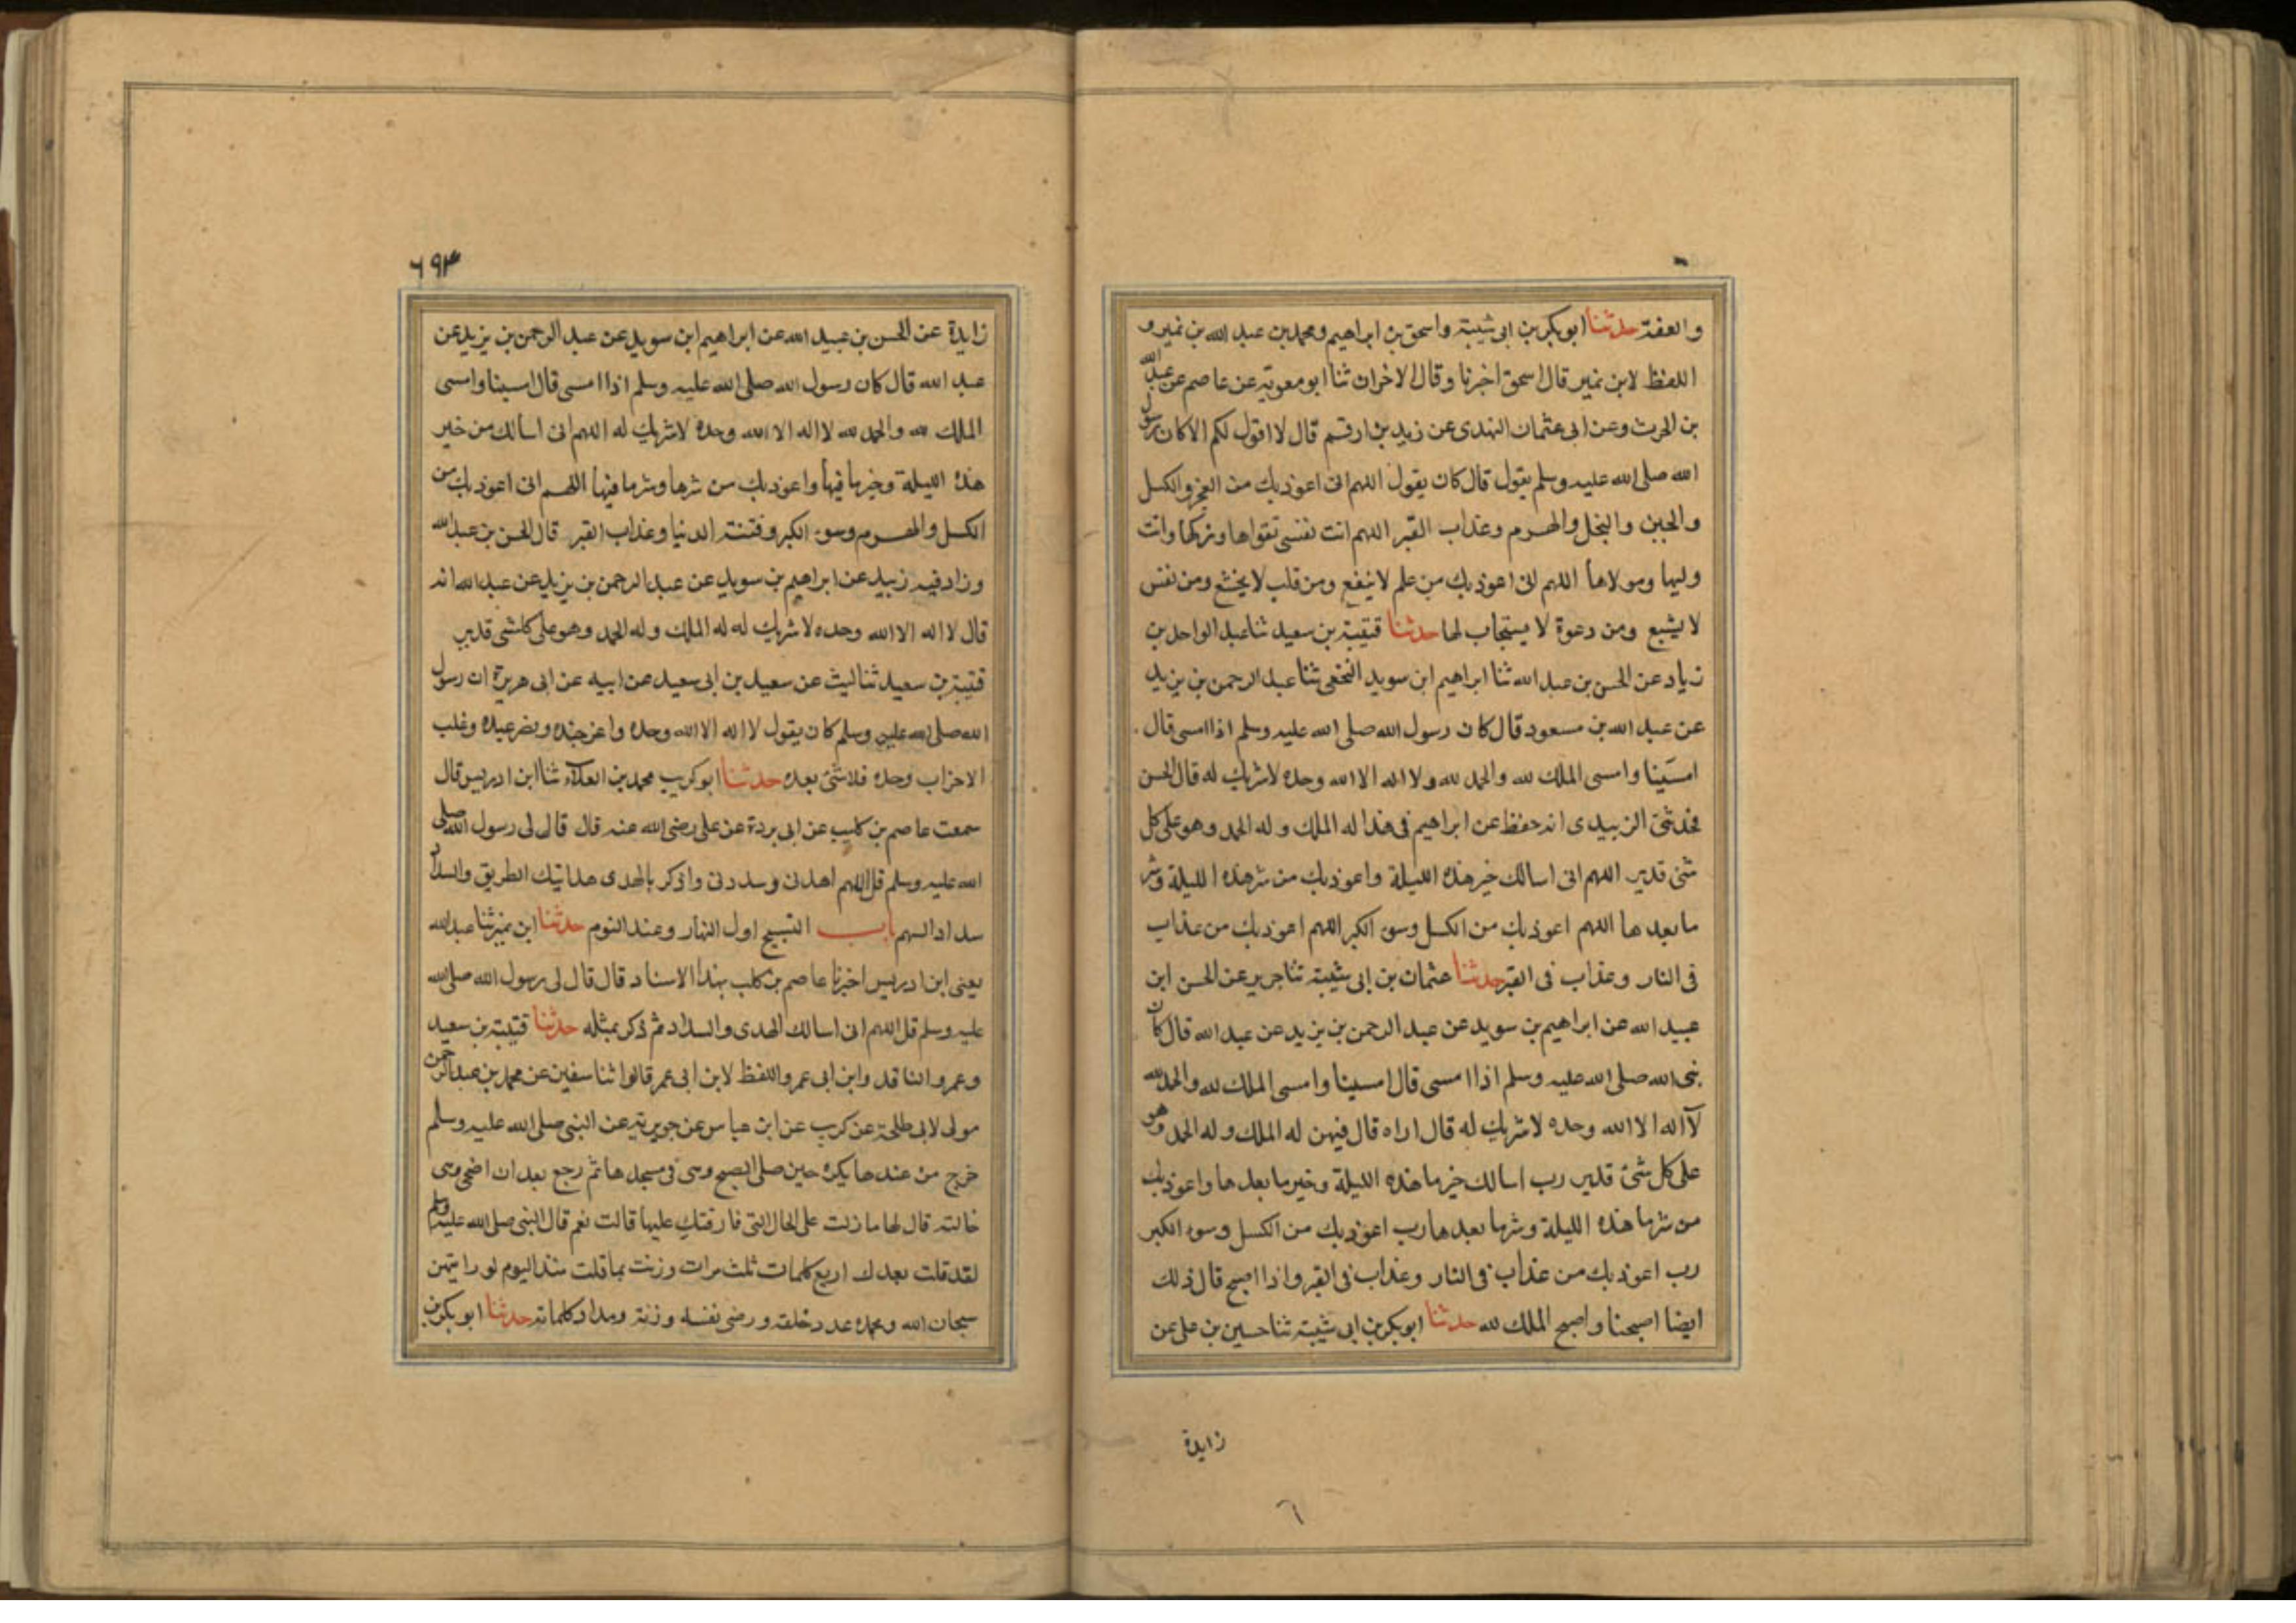 والعفة حدثنا ابوبكر بن ابى شيبة واسحق بن ابراهيم ومحمد بن عبد الله بن نمير و
اللفظ لابن نمير قال اسحق اخبرنا وقال الاخران ثنا ابو معوية عن عاصم عن عبد الله
بن الحرث وعن ابى عثمان النهدى عن زيد بن ارقم قال لا اقول لكم الا كان رسول
الله صلى الله عليه وسلم يقول قال كان يقول اللهم انى اعوذ بك من العجز والكسل
والجبن والبخل والهرم وعذاب القبر اللهم انت نفسى تقواها وزكها وانت
وليها ومولاها اللهم انى اعوذ بك من علم لا ينفع ومن قلب لا يخشع ومن نفس
لا يشبع ومن دعوة لا يستجاب لها حدثنا قتيبة بن سعيد ثنا عبد الواحد بن
زياد عن الحسن بن عبد الله ثنا ابراهيم ابن سويد النخعى ثنا عبد الرحمن بن يزيد
عن عبد الله بن مسعود قال كان رسول الله صلى الله عليه وسلم اذا امسى قال
امسينا وامسى الملك لله والحمد لله ولا اله الا الله وحده لا شريك له قال الحسن
فحدثنى الزبيدى انه حفظ عن ابراهيم فى هذا له الملك وله الحمد وهو على كل
شئ قدير اللهم انى اسالك خير هذه الليلة واعوذ بك من شر هذه الليلة وشر
ما بعدها اللهم اعوذ بك من الكسل وسوء الكبر اللهم اعوذ بك من عذاب
فى النار وعذاب فى القبر حدثنا عثمان بن ابى شيبة ثنا جرير عن الحسن ابن
عبيد الله عن ابراهيم بن سويد عن عبد الرحمن بن يزيد عن عبد الله قال كان
نبى الله صلى الله عليه وسلم اذا امسى قال امسينا وامسى الملك لله والحمد لله
لآ اله الا الله وحده لا شريك له قال اراه قال فيهن له الملك وله الحمد وهو
على كل شئ قدير رب اسالك خير ما هذه الليلة وخير ما بعدها واعوذ بك
من شر ما هذه الليلة وشر ما بعدها رب اعوذ بك من الكسل وسوء الكبر
رب اعوذ بك من عذاب فى النار وعذاب فى القبر واذا اصبح قال ذلك
ايضا اصبحنا واصبح الملك لله حدثنا ابوبكر بن ابى شيبة ثنا حسين بن على عن
زايدة
٦
٦٩٣
زايدة عن الحسن بن عبيد الله عن ابراهيم ابن سويد عن عبد الرحمن بن يزيد عن
عبد الله قال كان رسول الله صلى الله عليه وسلم اذا امسى قال امسينا وامسى
الملك لله والحمد لله لا اله الا الله وحده لا شريك له اللهم انى اسالك من خير
هذه الليلة وخير ما فيها واعوذ بك من شرها وشر ما فيها اللهم انى اعوذ بك من
الكسل والهرم وسوء الكبر وفتنة الدنيا وعذاب القبر قال الحسن بن عبد الله
وزاد فيه زبيد عن ابراهيم بن سويد عن عبد الرحمن بن يزيد عن عبد الله انه
قال لا اله الا الله وحده لا شريك له له الملك وله الحمد وهو على كلشى قدير
قتيبة بن سعيد ثنا ليث عن سعيد بن ابى سعيد عن ابيه عن ابى هريرة ان رسول
الله صلى الله عليه وسلم كان يقول لا اله الا الله وحده واعز جنده ونصر عبده وغلب
الاحزاب وحده فلا شئ بعده حدثنا ابو كريب محمد بن العلآء ثنا ابن ادريس قال
سمعت عاصم بن كليب عن ابى بردة عن على رضى الله عنه قال قال لى رسول الله صلى
الله عليه وسلم قل اللهم اهدنى وسددنى واذكر بالهدى هدايتك الطريق والسداد
سداد السهم باب التسبيح اول النهار وعند النوم حدثنا ابن نمير ثنا عبد الله
يعنى ابن ادريس اخبرنا عاصم بن كلب بهذا الاسناد قال قال لى رسول الله صلى الله
عليه وسلم قل اللهم انى اسالك الهدى والسداد ثم ذكر بمثله حدثنا قتيبة بن سعيد
وعمرو الناقد وابن ابى عمر واللفظ لابن ابى عمر قالوا ثنا سفين عن محمد بن عبد الرحمن
مولى لابى طلحة عن كريب عن ابن عباس عن جويرية عن النبى صلى الله عليه وسلم
خرج من عندها بكرة حين صلى الصبح وهى فى مسجدها ثم رجع بعد ان اضحى وهى
خالته قال لها ما زلت على الحال التى فارقتك عليها قالت نعم قال النبى صلى الله عليه وسلم
لقد قلت بعدك اربع كلمات ثلث مرات وزنت بما قلت منذ اليوم لو رايتهن
سبحان الله وبحمده عدد خلقه ورضى نفسه وزنة ومداد كلماته حدثنا ابوبكر بن